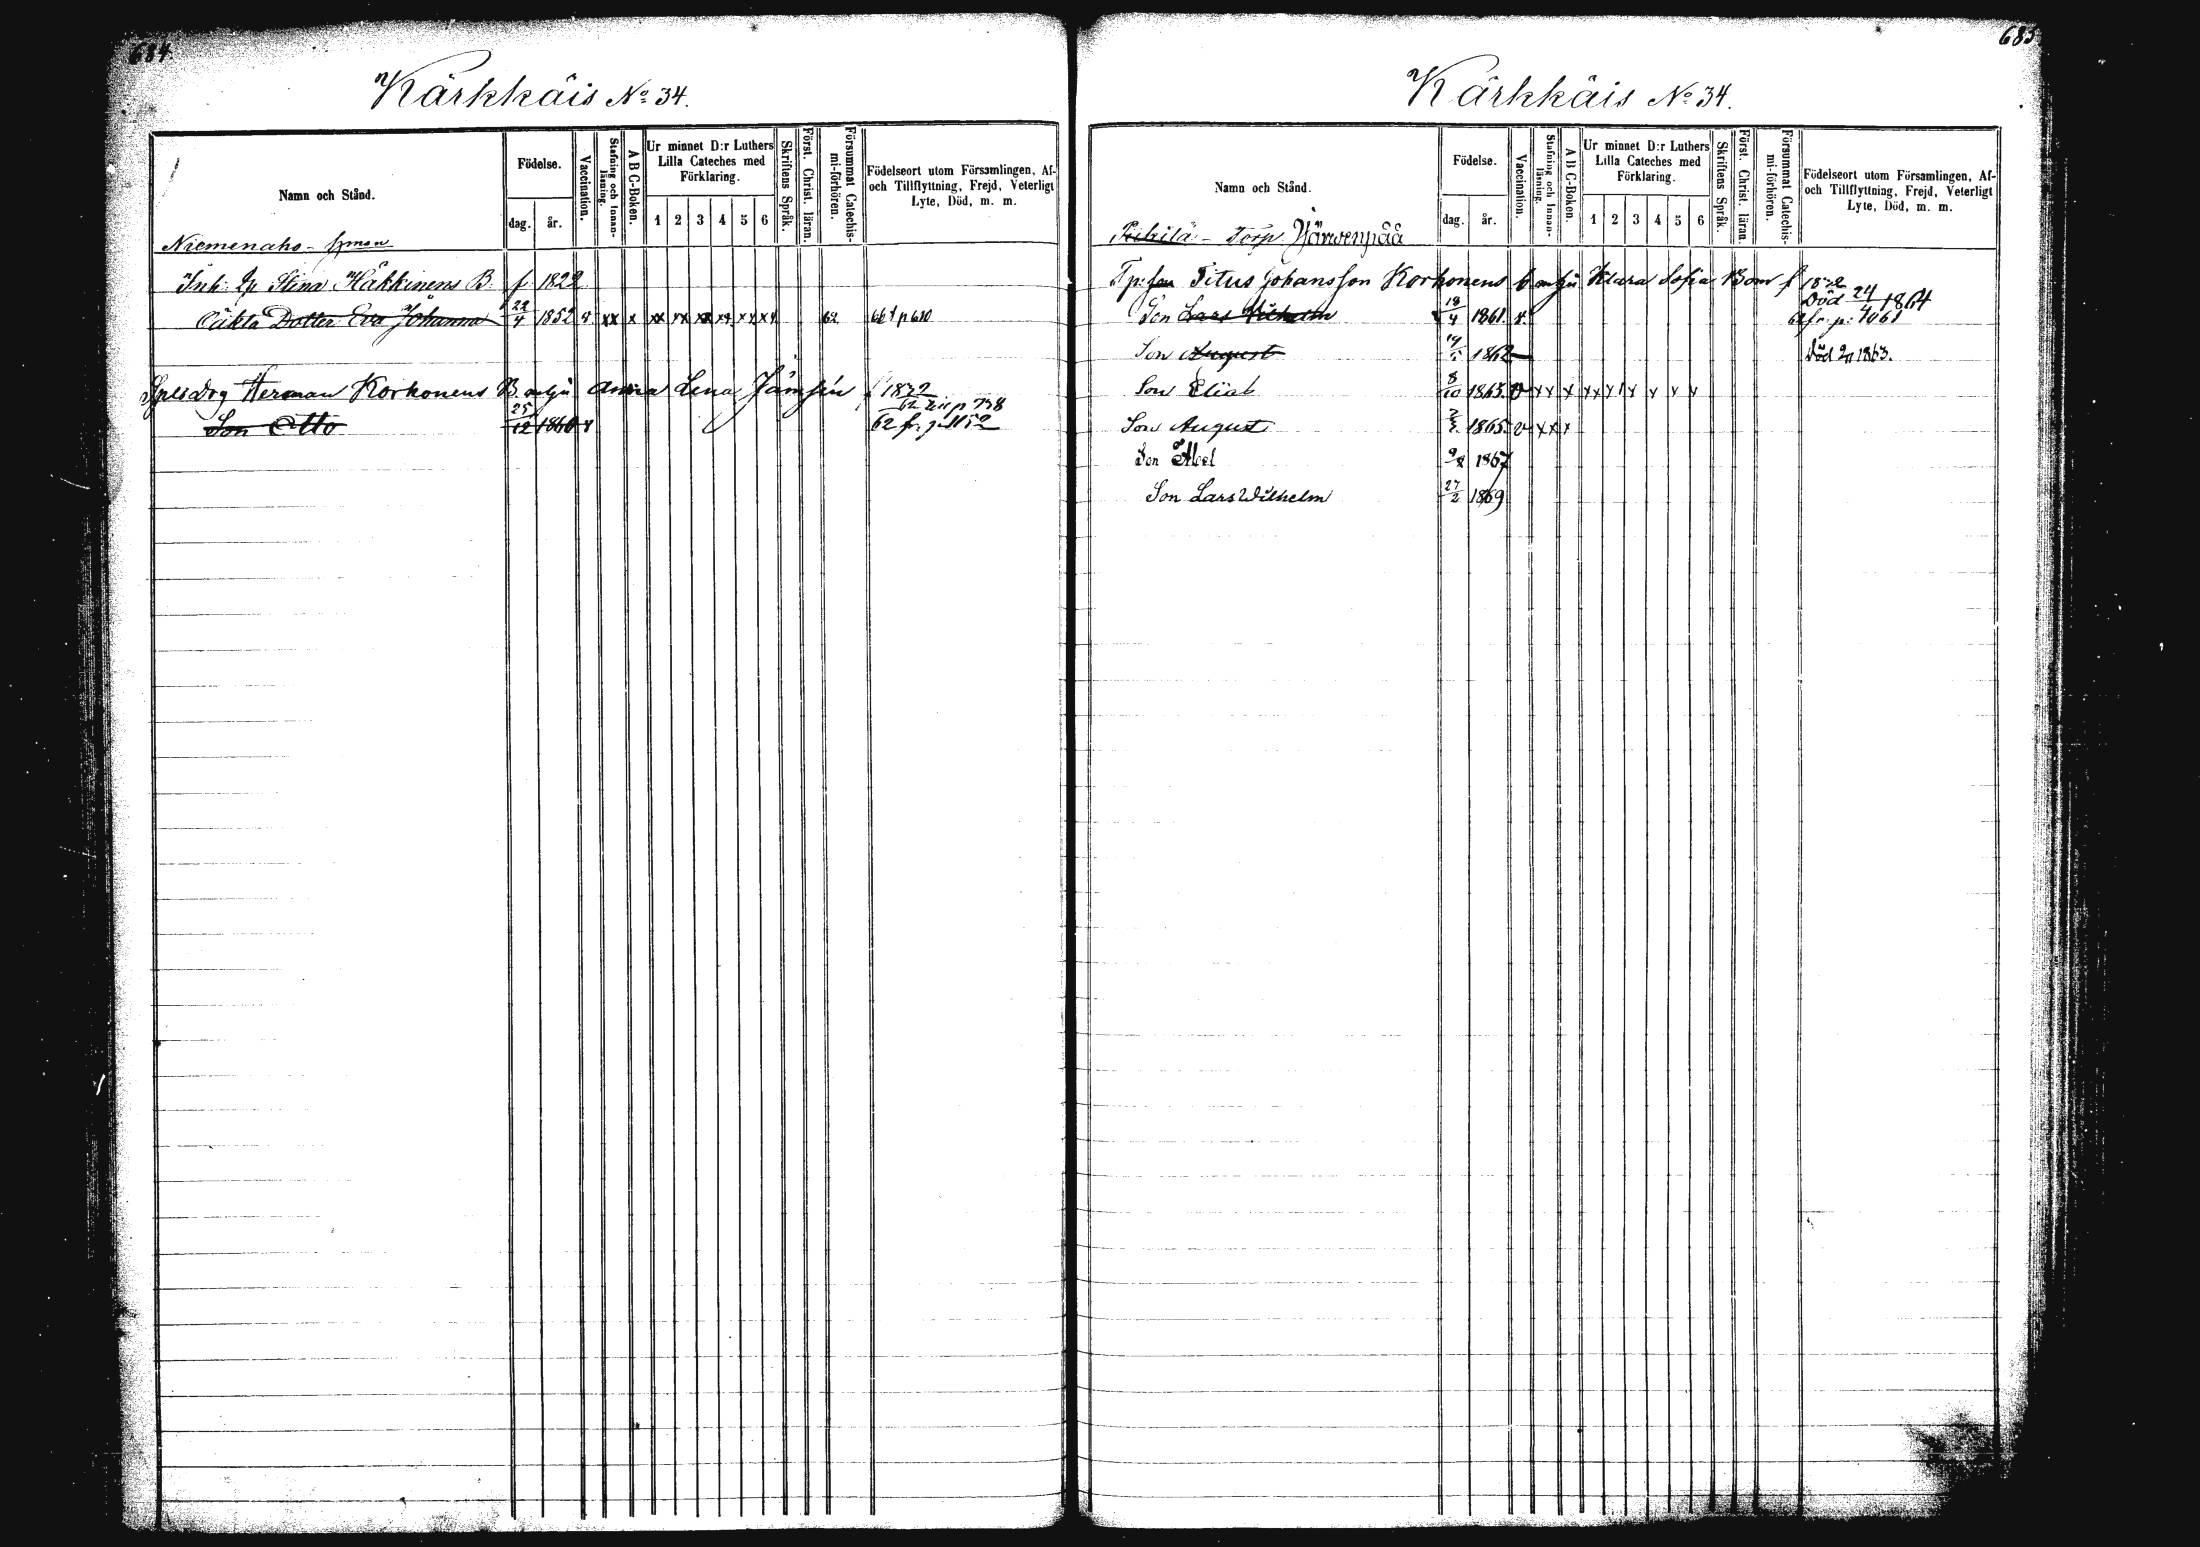 684.
Kärkkäis No 34.
Namn och Stånd.
Födelse.
dag.
år.
Vaccination.
Stafning och Innan-läsning.
A B C-Boken.
Ur minnet D:r Luthers
Lilla Cateches med
Förklaring.
1 2 3 4 5 6
Skriftens Språk.
Först. Christ. läran.
Försummat Catechis-mi-förhören.
Födelseort utom Församlingen, Af-
och Tillflyttning, Frejd, Veterligt
Lyte, Död, m. m.
Niemenaho
Inh: Stina Häkkinens B. f. 1822
Oäkta Dotter Eva Johanna 22/4 1852 v xx x xx xx xx xx xx xx 62 66 t p 680
Herman Korhonens B. Anna Lena Jämsén f 1832
62 till p 738
Son Otto 25/12 1860 v 62 fr. p 1152
685
Kärkkäis No 34.
Namn och Stånd.
Födelse.
dag.
år.
Vaccination.
Stafning och Innan-läsning.
A B C-Boken.
Ur minnet D:r Luthers
Lilla Cateches med
Förklaring.
1 2 3 4 5 6
Skriftens Språk.
Först. Christ. läran.
Försummat Catechis-mi-förhören.
Födelseort utom Församlingen, Af-
och Tillflyttning, Frejd, Veterligt
Lyte, Död, m. m.
Torp Järwenpää
Titus Johansson Korhonens Klara Sofia Bom f
Död 24/4 1864
Son Lars Vilhelm 18/4 1861. v. 62 fr. p: 1061
Son August 1862 Död 1863.
Son Eliab 8/10 1863. v xx x xx x x x x x
Son August 1865. v xx x
Son Abel 1867
Son Lars Wilhelm 27/2 1869